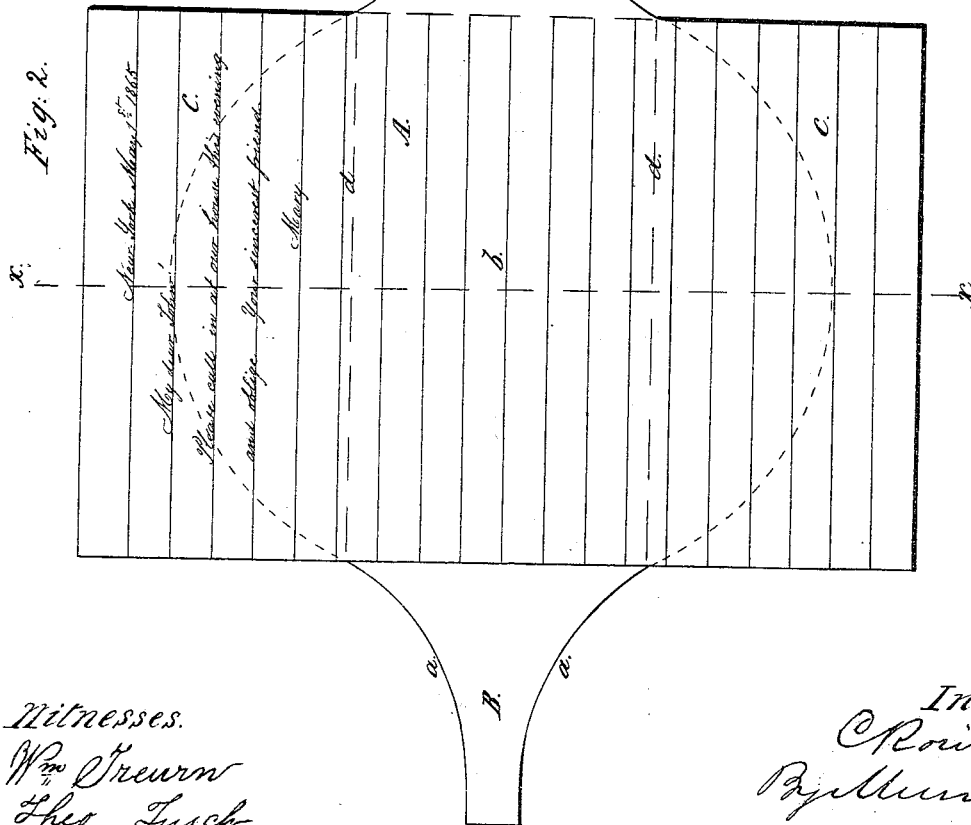 Fig: 2.
x.
New York May 1st 1865
My dear John
C.
Please call in at our house this evening
and oblige Your sincerest friend
Mary
d.
A.
b.
d.
C.
x.
a.
B.
a.
Witnesses.
Wm
Theo Tusch
In
C
By Mun